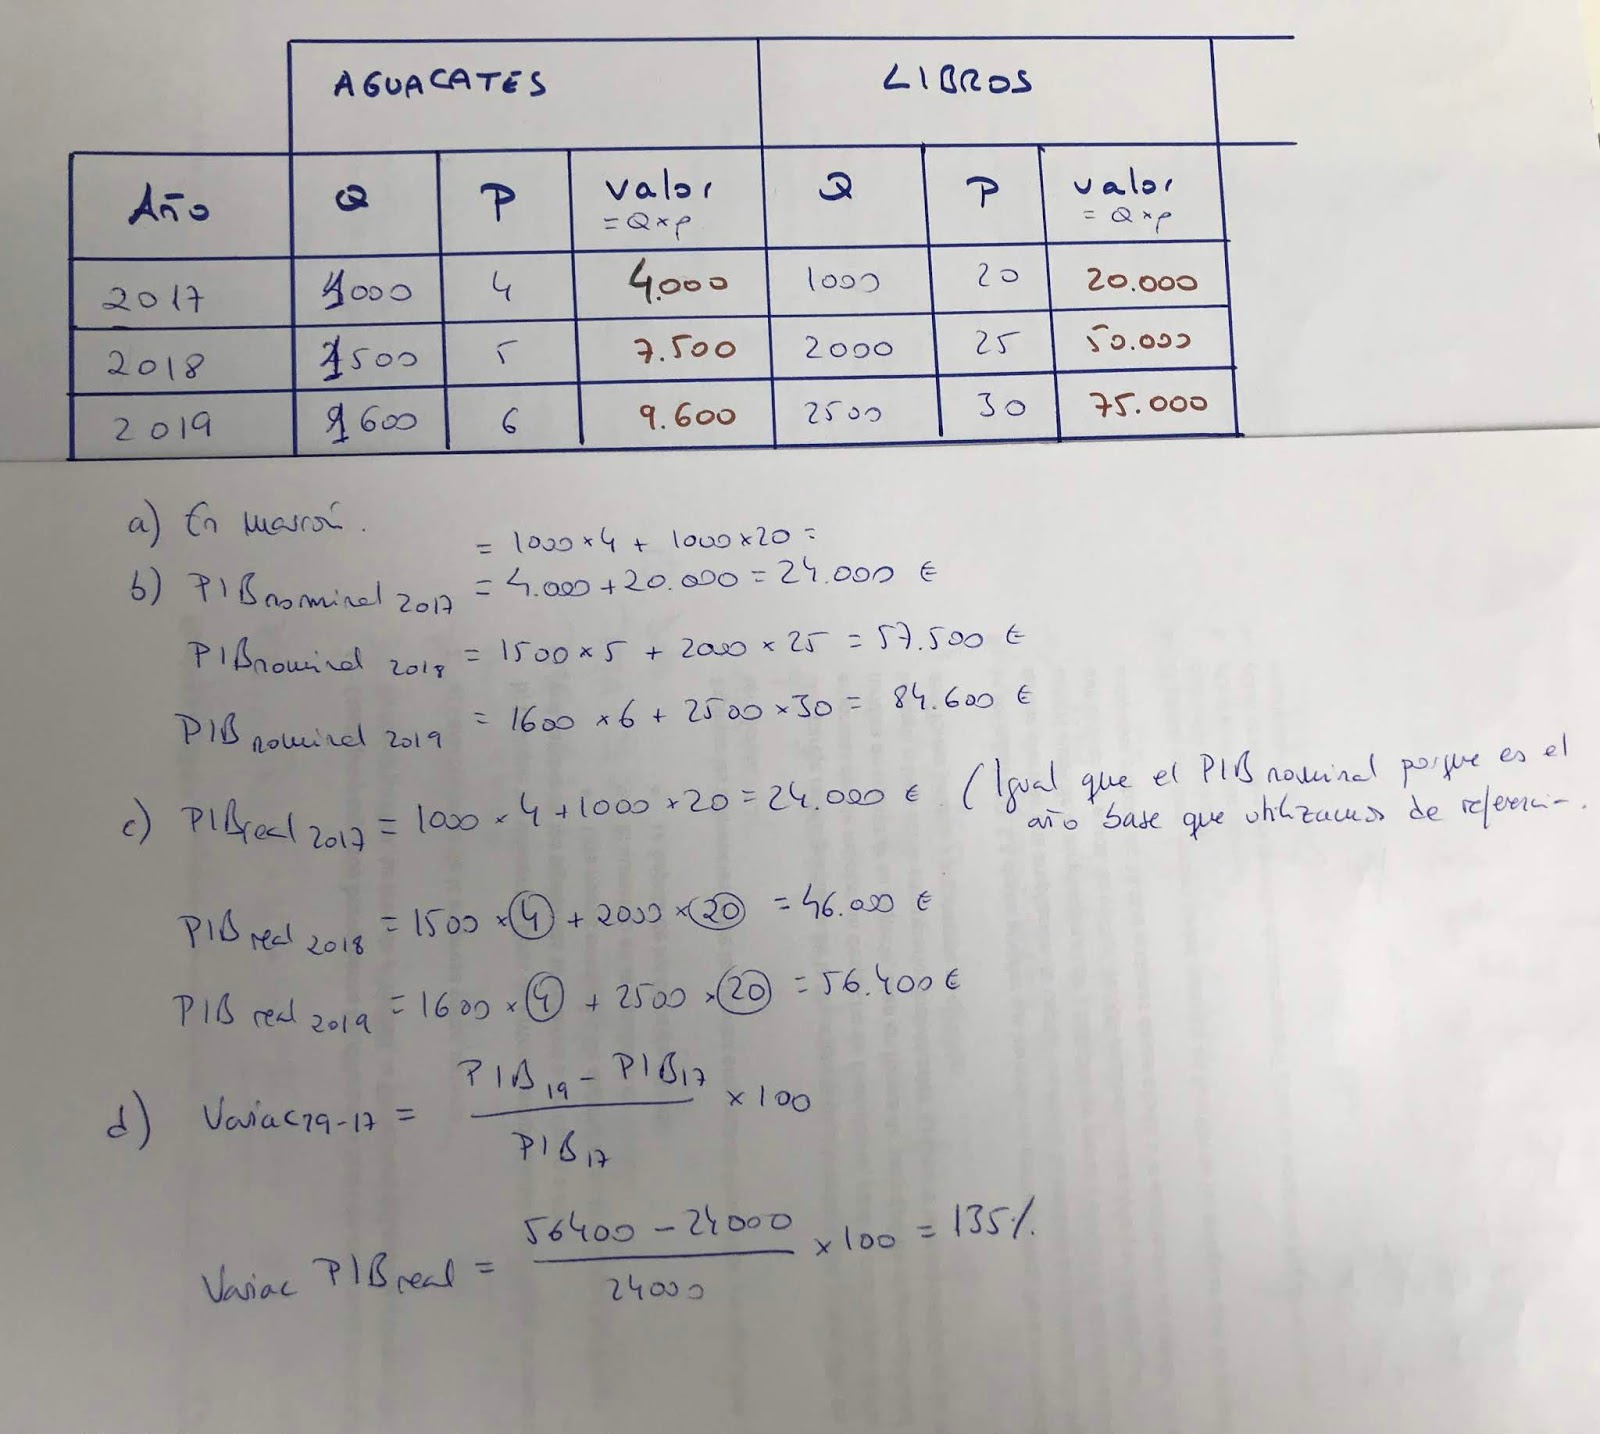 AGUACATES LIBROS
Año Q P valor =Q×p Q P valor = Q×p
2017 1000 4 4.000 1000 20 20.000
2018 1500 5 7.500 2000 25 50.000
2019 1600 6 9.600 2500 30 75.000
a) En marrón.
= 1000×4 + 1000×20 =
b) PIB nominal 2017 = 4.000+20.000 = 24.000 €
PIB nominal 2018 = 1500×5 + 2000×25 = 57.500 €
PIB nominal 2019 = 1600×6 + 2500×30 = 84.600 €
c) PIB real 2017 = 1000×4+1000×20=24.000 € (Igual que el PIB nominal porque es el
año base que utilizamos de referencia.
PIB real 2018 = 1500×4 + 2000×20 = 46.000 €
PIB real 2019 = 1600×4 + 2500×20 = 56.400 €
d) Variac 19-17 = PIB 19 - PIB 17 × 100
PIB 17
Variac PIB real = 56400 - 24000 × 100 = 135%
24000